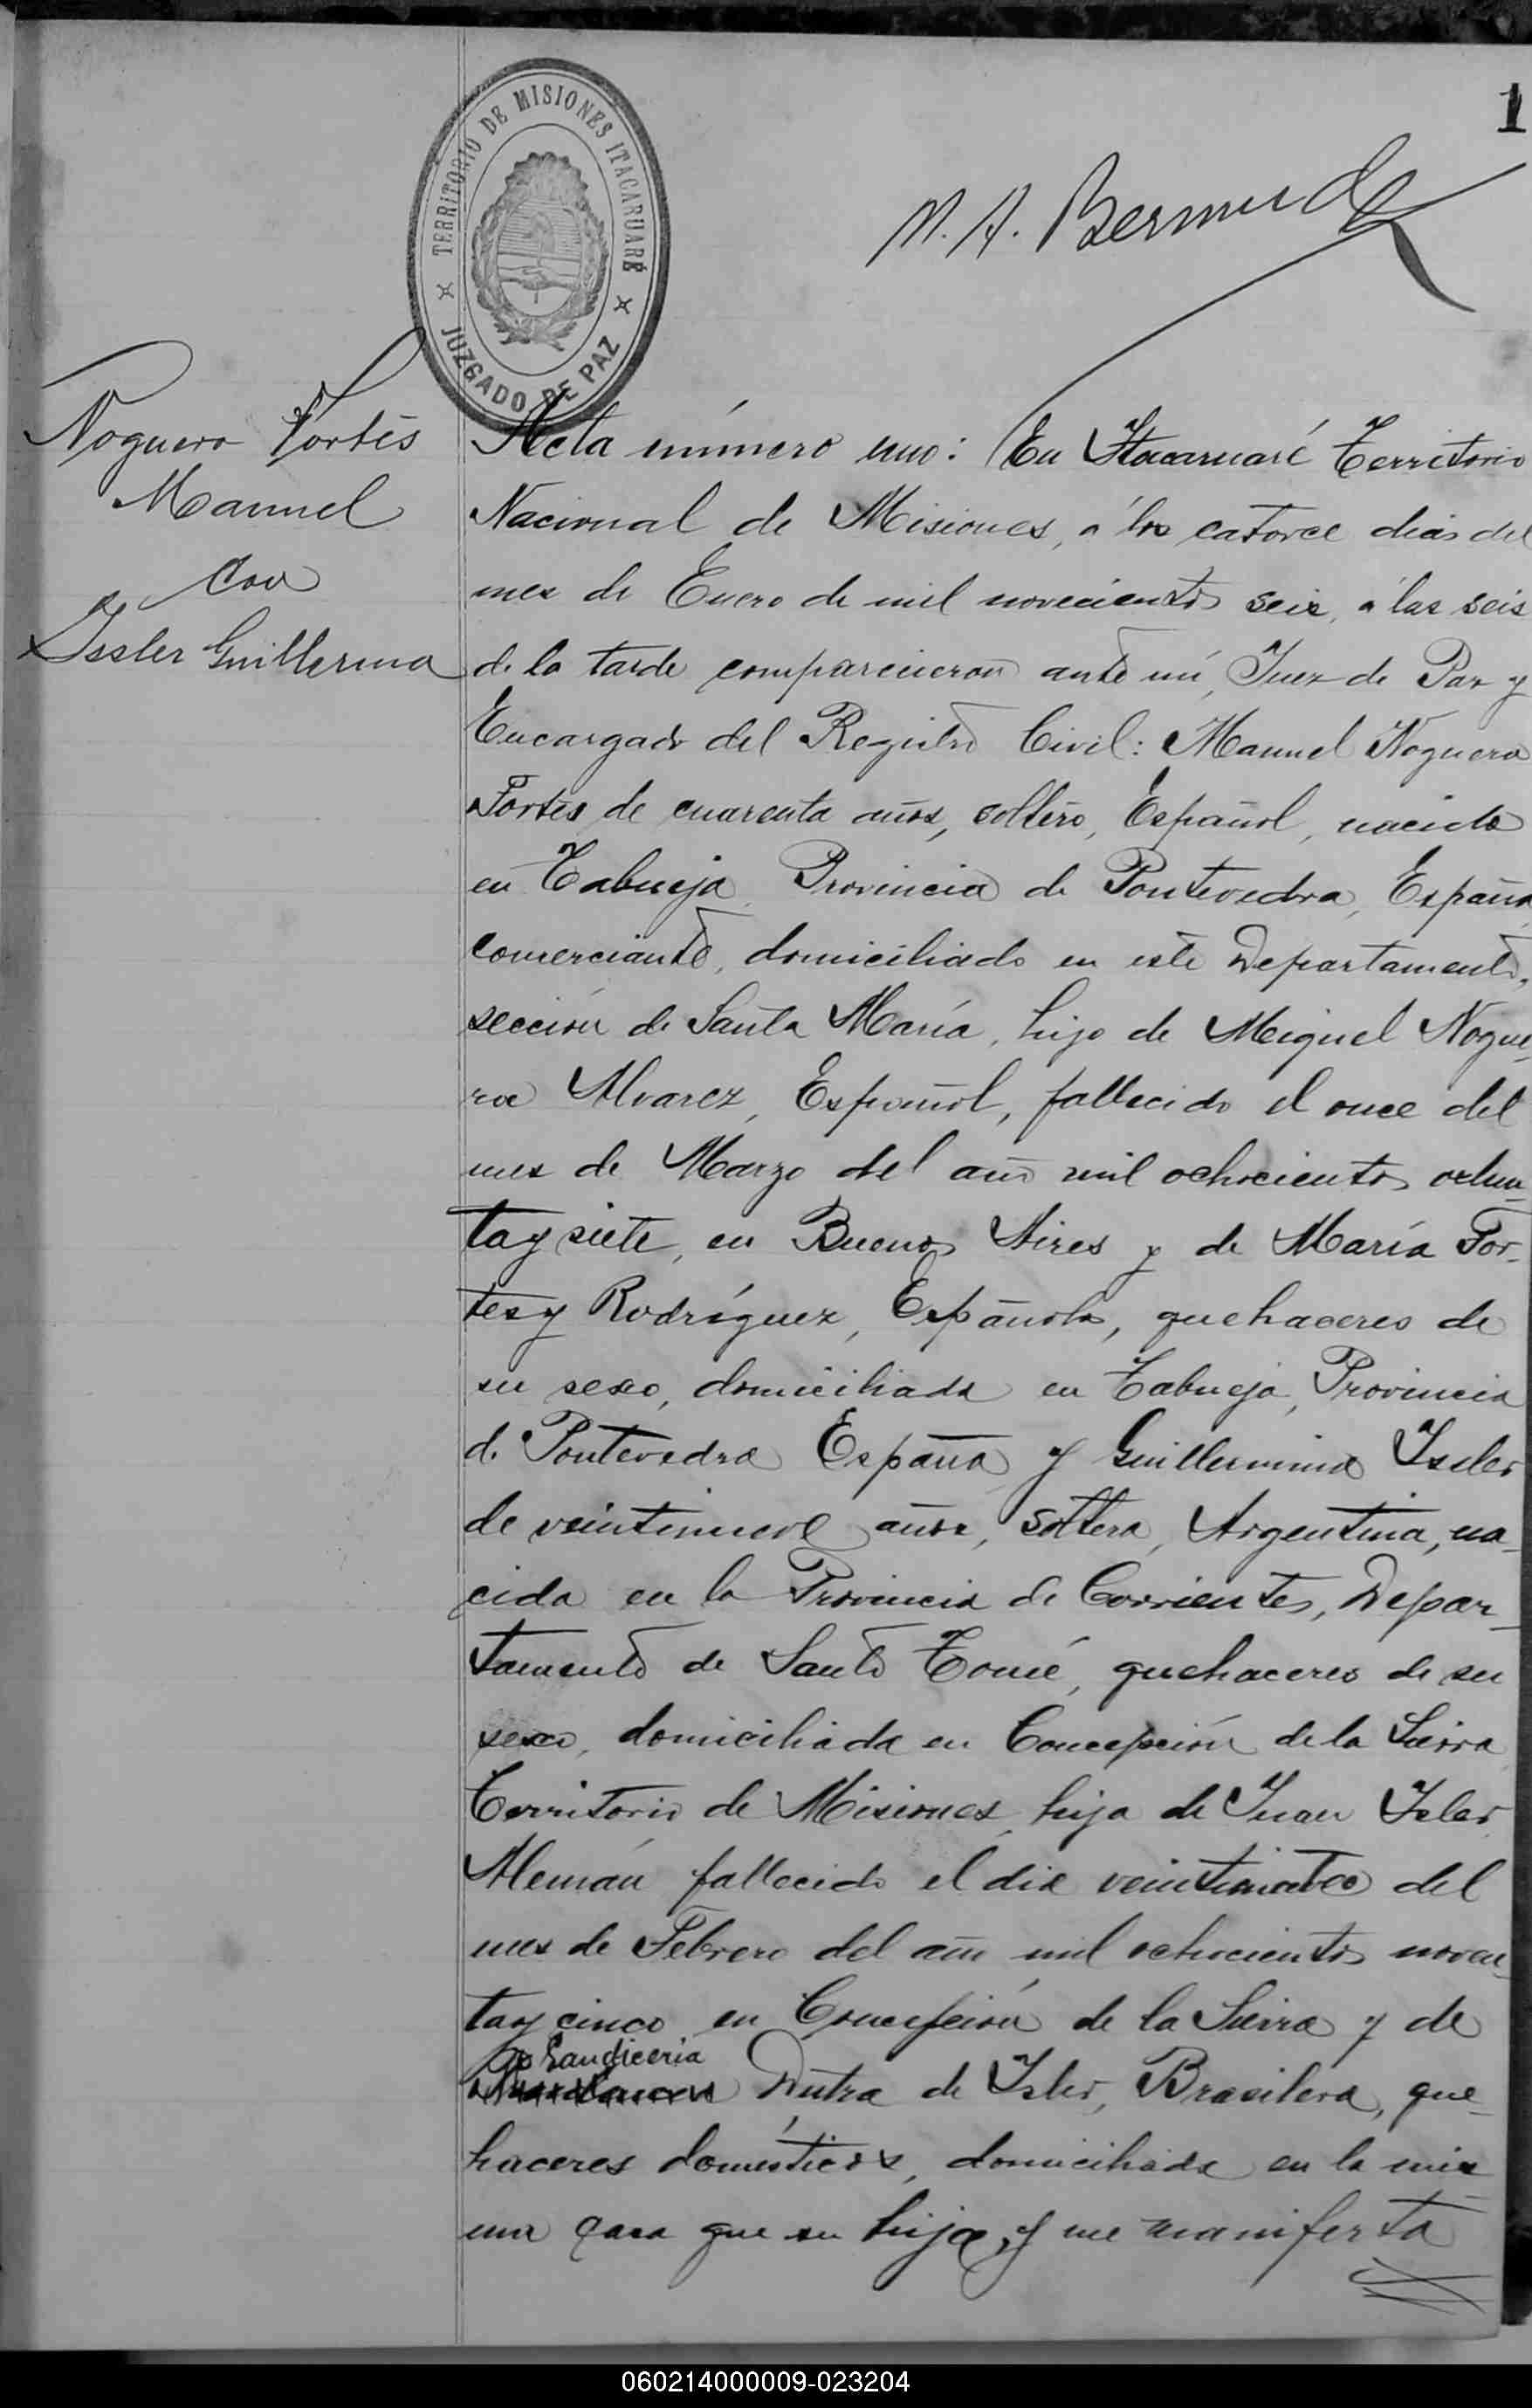 1
TERRITORIO DE MISIONES ITACARUARÉ
JUZGADO DE PAZ
M. A. Bermudez
Noguera Fortes
Manuel
con
Issler Guillermina
Acta número uno: En Itacaruaré Territorio
Nacional de Misiones, á los catorce dias del
mes de Enero de mil novecientos seis, á las seis
de la tarde comparecieron ante mí, Juez de Paz y
Encargado del Registro Civil: Manuel Noguera
Fortes de cuarenta años, soltero, Español, nacido
en Tabueja Provincia de Pontevedra, España
comerciante, domiciliado en este Departamento,
sección de Santa María, hijo de Miguel Nogue-
ra Alvarez, Español, fallecido el once del
mes de Marzo del año mil ochocientos ochen-
tay siete, en Buenos Aires y de María For-
tes y Rodríguez, Española, quehaceres de
su sexo, domiciliada en Tabueja, Provincia
de Pontevedra España y Guillermina Isler
de veintinueve años, soltera, Argentina, na-
cida en la Provincia de Corrientes, Depar-
tamento de Santo Tomé, quehaceres de su
sexo, domiciliada en Concepción de la Sierra
Territorio de Misiones, hija de Juan Isler
Alemán fallecido el dia del
mes de Febrero del año mil ochocientos noven-
tay cinco en Concepción de la Sierra y de
Dutra de Isler, Brasilera, que-
haceres domésticos, domiciliada en la mis-
ma casa que su hija, y me manifesta
060214000009-023204